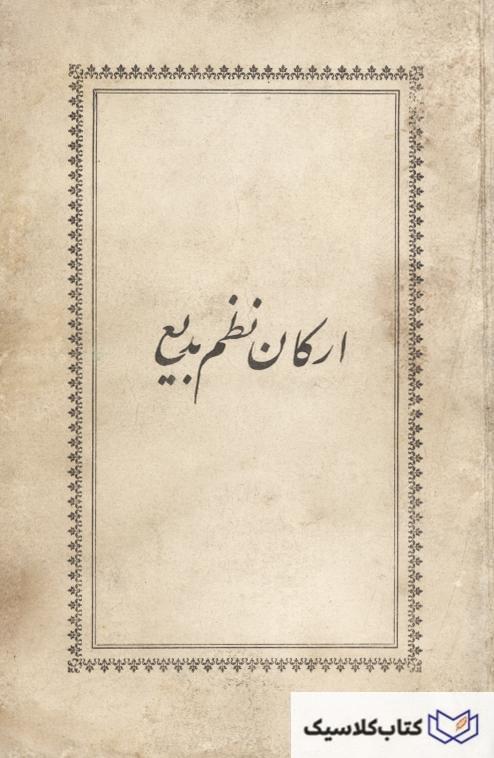 ارکان نظم بدیع
کتاب کلاسیک